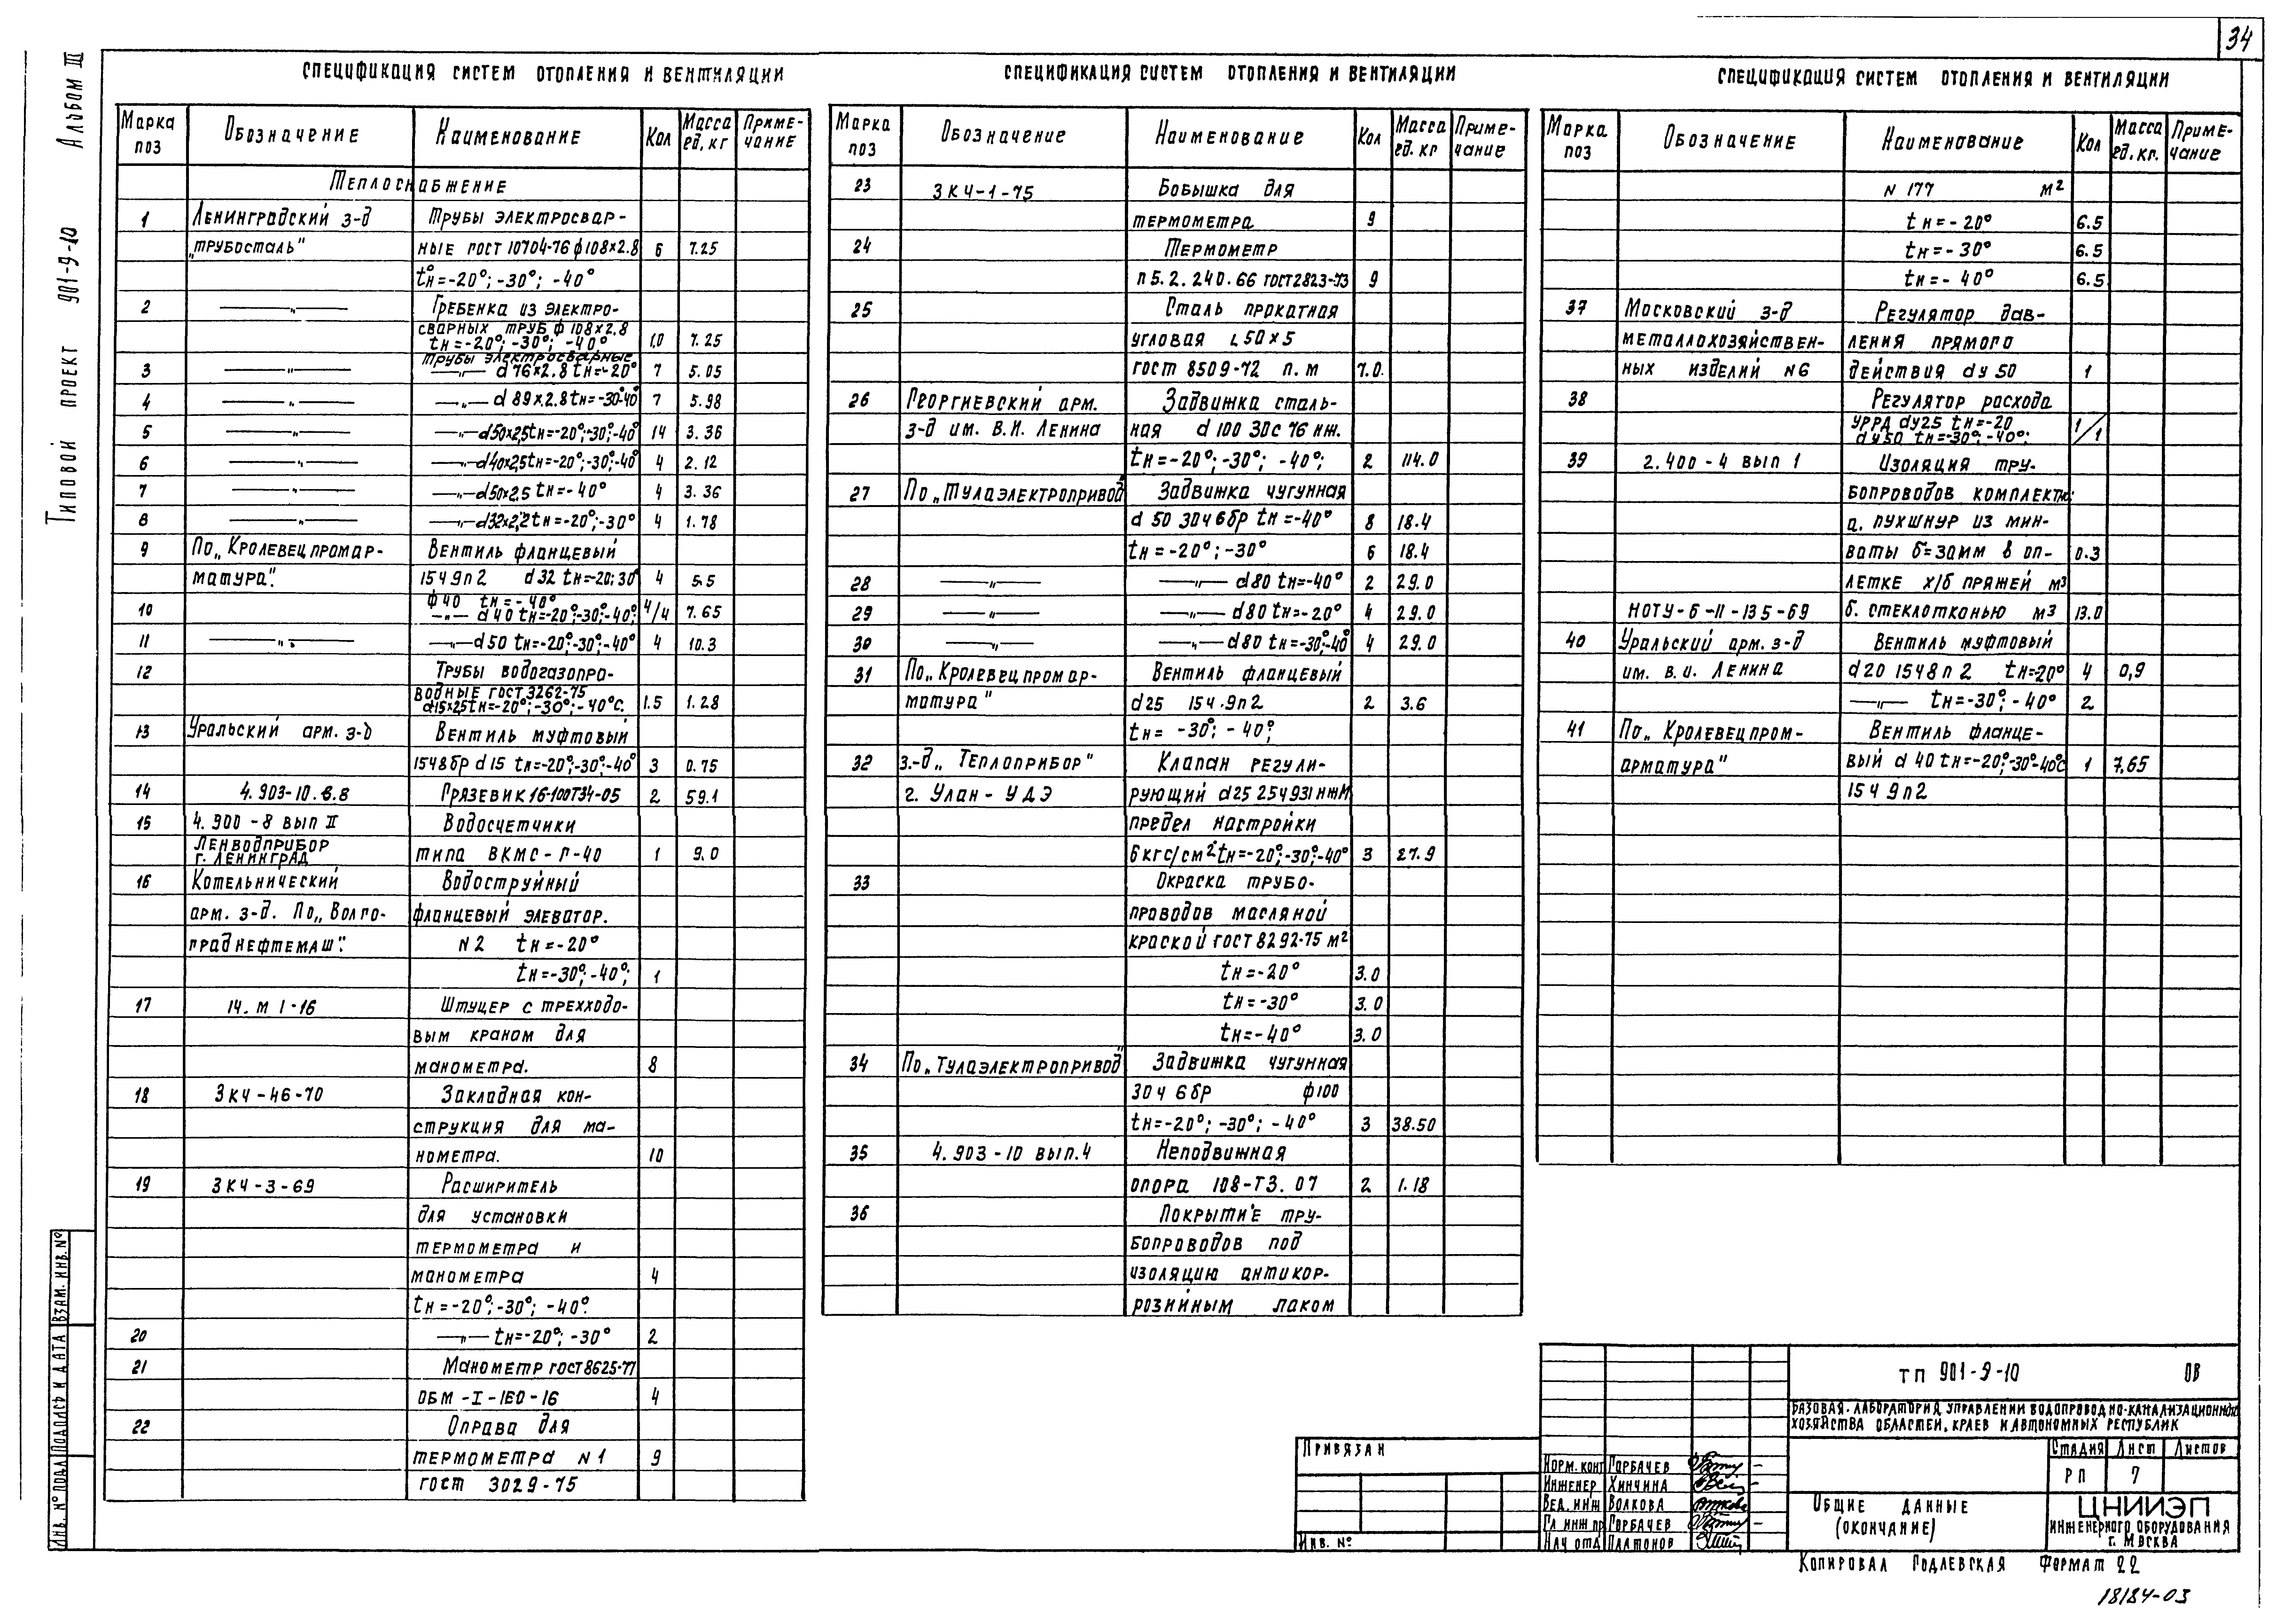 34
Альбом III
Типовой проект 901-9-10
Спецификация систем отопления и вентиляции
Марка поз | Обозначение | Наименование | Кол | Масса ед, кг | Примечание
Теплоснабжение
1 Ленинградский з-д Трубы электросвар-
"Трубосталь" ные ГОСТ 10704-76 ф108х2.8 6 7.25
tн=-20°; -30°; -40°
2 —„— Гребенка из электро-
сварных труб ф 108х2.8
tн=-20°; -30°; -40° 1,0 7.25
Трубы электросварные
3 —„— —„— d 76х2.8 tн=-20° 7 5.05
4 —„— —„— d 89х2.8 tн=-30°-40° 7 5.98
5 —„— —„— d50х2,5 tн=-20°;-30°;-40° 14 3.36
6 —„— —„— d40х2,5 tн=-20°;-30°;-40° 4 2.12
7 —„— —„— d50х2.5 tн=-40° 4 3.36
8 —„— —„— d32х2,2 tн=-20°;-30° 4 1.78
9 По „Кролевецпромар- Вентиль фланцевый
матура". 15ч9п2 d32 tн=-20;30° 4 5.5
ф40 tн=-40°
10 —„— d40 tн=-20°;-30°;-40°; 4/4 7.65
11 —„— —„— d50 tн=-20°;-30°;-40° 4 10.3
12 Трубы водогазопро-
водные ГОСТ 3262-75
d15х2.5 tн=-20°;-30°;-40°С. 1.5 1.28
13 Уральский арм. з-д Вентиль муфтовый
15ч8бр d15 tн=-20°;-30°;-40° 3 0.75
14 4.903-10.в.8 Грязевик 16-100Т34-05 2 59.1
15 4.900-8 вып II Водосчетчики
Ленводприбор
г. Ленинград типа ВКМС-Г-40 1 9.0
16 Котельнический Водоструйный
арм. з-д. По „Волго- фланцевый элеватор.
граднефтемаш". N2 tн=-20°
tн=-30°;-40°; 1
17 14. М 1-16 Штуцер с трехходо-
вым краном для
манометра. 8
18 ЗКЧ-46-70 Закладная кон-
струкция для ма-
нометра. 10
19 ЗКЧ-3-69 Расширитель
для установки
термометра и
манометра 4
tн=-20°; -30°; -40°.
20 —„— tн=-20°; -30° 2
21 Манометр ГОСТ 8625-77
ОБМ-I-160-16 4
22 Оправа для
термометра N1 9
ГОСТ 3029-75
Спецификация систем отопления и вентиляции
Марка поз | Обозначение | Наименование | Кол | Масса ед. кг | Примечание
23 ЗКЧ-1-75 Бобышка для
термометра 9
24 Термометр
П5.2.240.66 ГОСТ 2823-73 9
25 Сталь прокатная
угловая L50х5
ГОСТ 8509-72 п.м 7.0
26 Георгиевский арм. Задвижка сталь-
з-д им. В.И. Ленина ная d 100 30с 76 нж.
tн=-20°; -30°; -40°; 2 114.0
27 По „Тулаэлектропривод" Задвижка чугунная
d 50 30ч6бр tн=-40° 8 18.4
tн=-20°; -30° 6 18.4
28 —„— —„— d80 tн=-40° 2 29.0
29 —„— —„— d80 tн=-20° 4 29.0
30 —„— —„— d80 tн=-30°-40° 4 29.0
31 По „Кролевецпромар- Вентиль фланцевый
матура" d25 15ч.9п2 2 3.6
tн= -30°; -40°;
32 з.-д „Теплоприбор" Клапан регули-
г. Улан-Удэ рующий d25 25ч931нжм
предел настройки
6 кгс/см² tн=-20°;-30°;-40° 3 27.9
33 Окраска трубо-
проводов масляной
краской ГОСТ 8292-75 м²
tн=-20° 3.0
tн=-30° 3.0
tн=-40° 3.0
34 По „Тулаэлектропривод" Задвижка чугунная
30ч 6бр ф100
tн=-20°; -30°; -40° 3 38.50
35 4.903-10 вып.4 Неподвижная
опора 108-Т3.07 2 1.18
36 Покрытие тру-
бопроводов под
изоляцию антикор-
розийным лаком
Спецификация систем отопления и вентиляции
Марка поз | Обозначение | Наименование | Кол | Масса ед. кг. | Примечание
N 177 м²
tн=-20° 6.5
tн=-30° 6.5
tн=-40° 6.5
37 Московский з-д Регулятор дав-
металлохозяйствен- ления прямого
ных изделий N6 действия dу 50 1
38 Регулятор расхода
УРРД dу25 tн=-20
dу50 tн=-30°;-40°; 1/1
39 2.400-4 вып 1 Изоляция тру-
бопроводов комплектн:
а. пухшнур из мин-
ваты б=30мм в оп- 0.3
летке х/б пряжей м³
НОТУ-6-11-135-69 б. стеклотканью м3 13.0
40 Уральский арм. з-д Вентиль муфтовый
им. В.И. Ленина d20 15ч8п2 tн=20° 4 0,9
—„— tн=-30°;-40° 2
41 По „Кролевецпром- Вентиль фланце-
арматура" вый d 40 tн=-20°;-30°-40°С 1 7,65
15ч 9п2
Привязан
Инв. №
Норм. конт Горбачев
Инженер Хинчина
Вед. инж Волкова
Гл инж пр Горбачев
Нач отд Платонов
ТП 901-9-10 ОВ
Базовая лаборатория управлении водопроводно-канализационного
хозяйства областей, краев и автономных республик
Стадия Лист Листов
РП 7
Общие данные
(окончание)
ЦНИИЭП
инженерного оборудования
г. Москва
Копировал Подлевская Формат 22
18184-03
Инв. № подл Подпись и дата Взам. инв. №